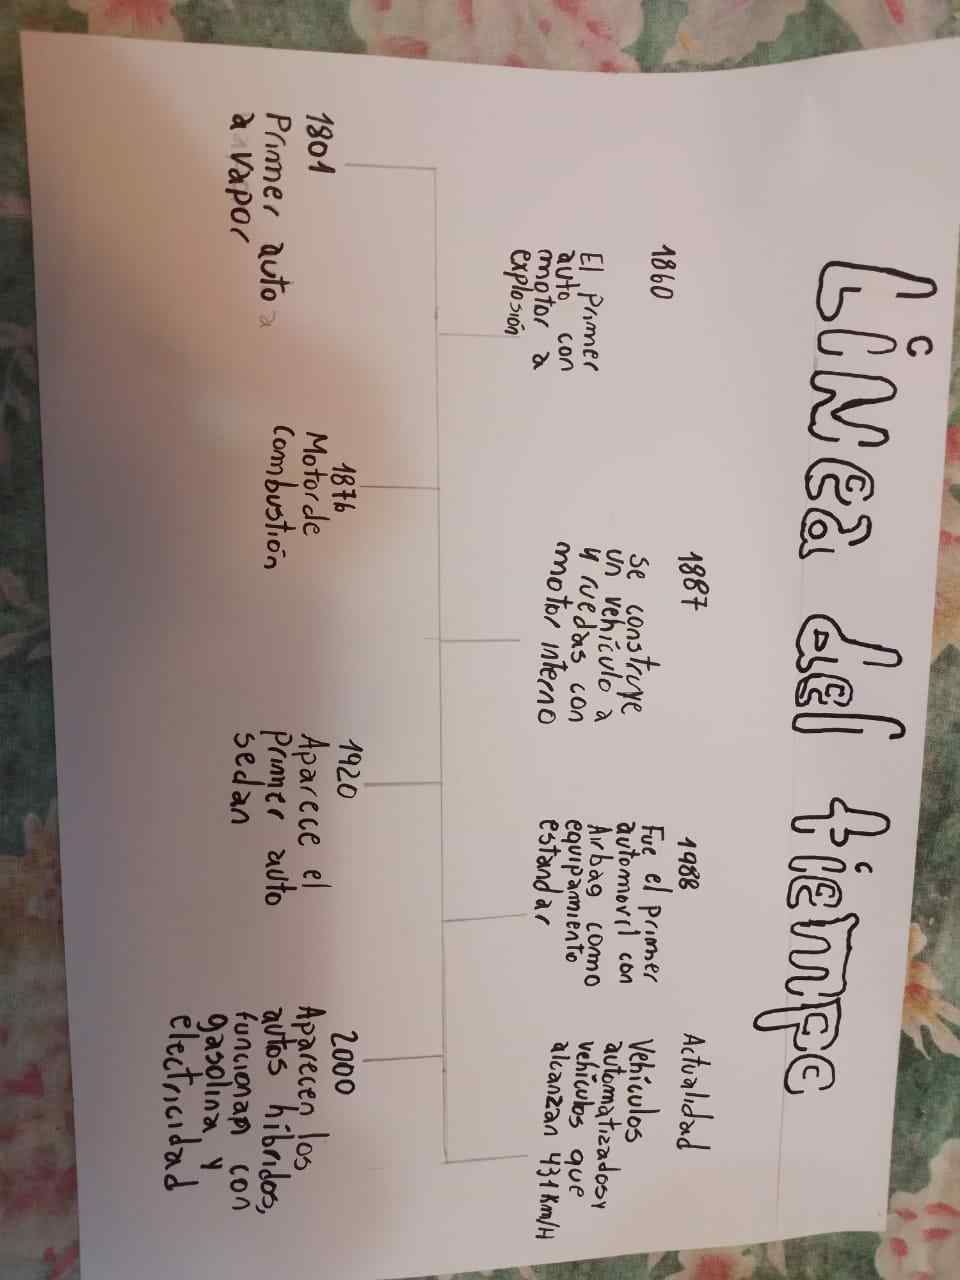 Linea del tiempo
1801
Primer auto a
a vapor
1860
El primer
auto con
motor a
explosión
1876
Motor de
combustión
1887
Se construye
un vehículo a
4 ruedas con
motor interno
1920
Aparece el
primer auto
sedan
1988
Fue el primer
automovril con
Airbag como
equipamiento
estandar
2000
Aparecen los
autos híbridos,
funcionan con
gasolina y
electricidad
Actualidad
Vehículos
automatizados y
vehículos que
alcanzan 431 Km/H